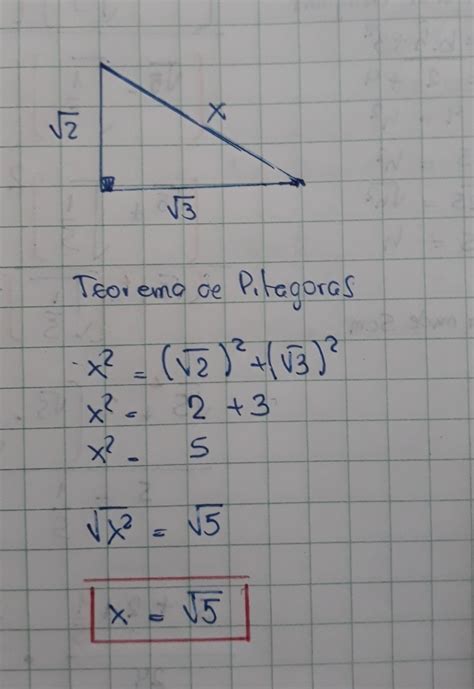 √2
x
√3
Teorema de Pitagoras
x² = (√2)² + (√3)²
x² = 2 + 3
x² = 5
√x² = √5
x = √5